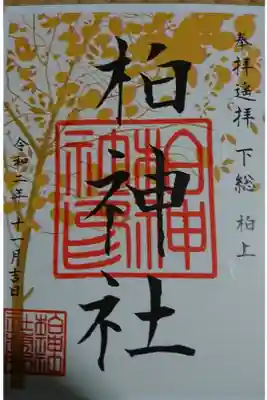 奉拝遥拝 下総 柏上
柏神社
令和二年 十一月吉日